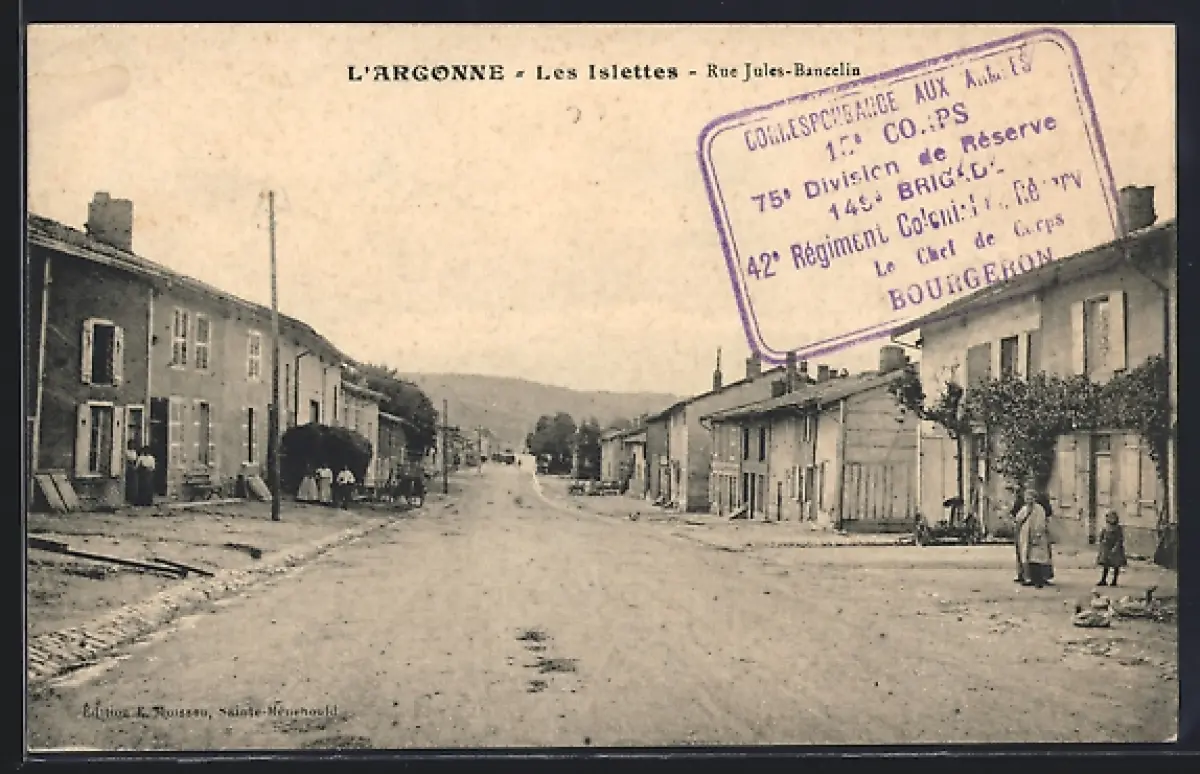 L'ARGONNE - Les Islettes - Rue Jules-Bancelin
CORRESPONDANCE AUX ARMÉES
15e CORPS
75e Division de Réserve
149e BRIGADE
42e Régiment Colonial
Le Chef de Corps
BOURGERON
Édition E. Moisson, Sainte-Ménehould